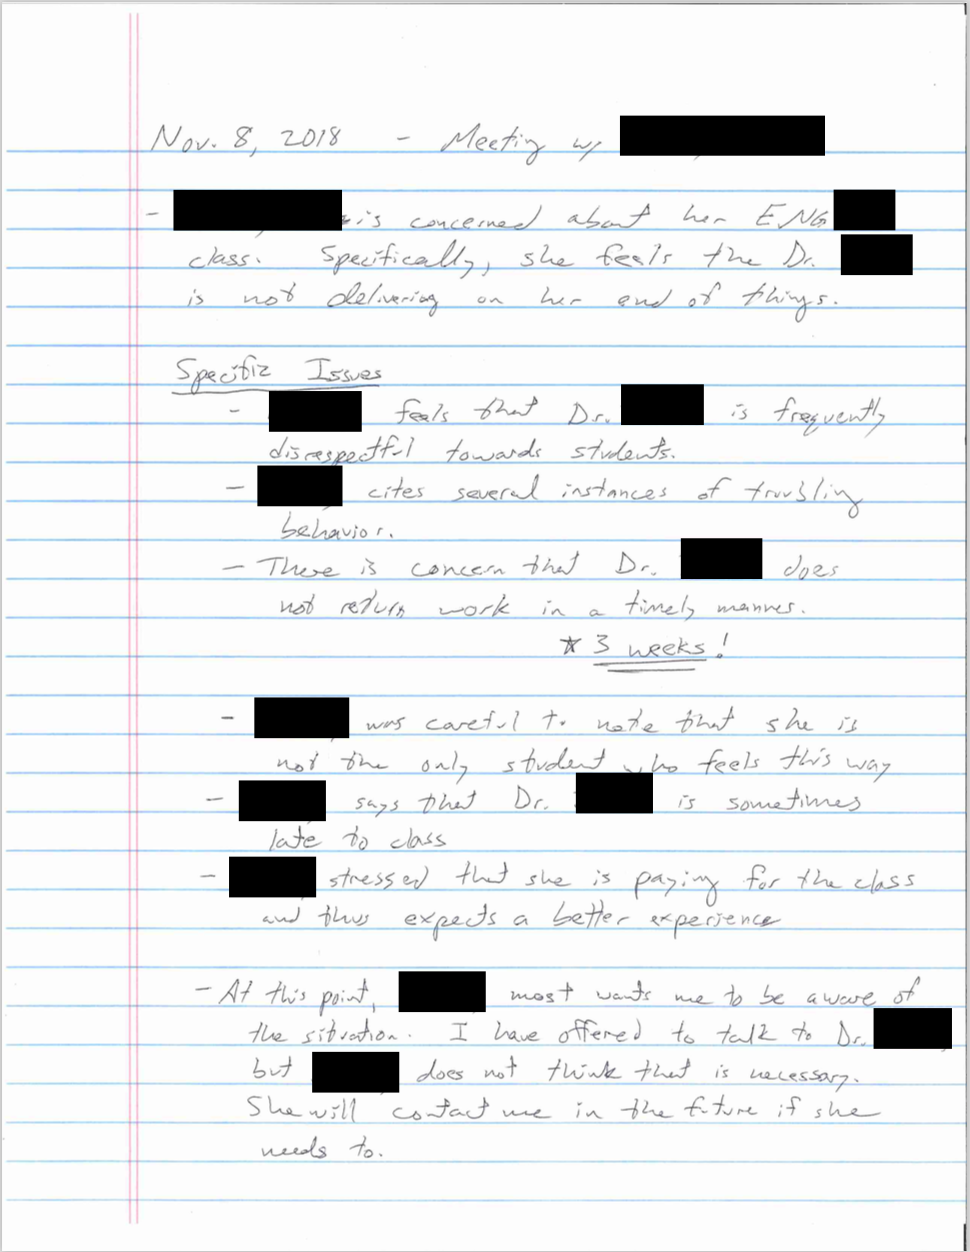 Nov. 8, 2018 - Meeting w/
- is concerned about her ENG
class. Specifically, she feels the Dr.
is not delivering on her end of things.
Specific Issues
- feels that Dr. is frequently
disrespectful towards students.
- cites several instances of troubling
behavior.
- There is concern that Dr. does
not return work in a timely manner.
* 3 weeks!
- was careful to note that she is
not the only student who feels this way
- says that Dr. is sometimes
late to class
- stressed that she is paying for the class
and thus expects a better experience
- At this point, most wants me to be aware of
the situation. I have offered to talk to Dr.
but does not think that is necessary.
She will contact me in the future if she
needs to.